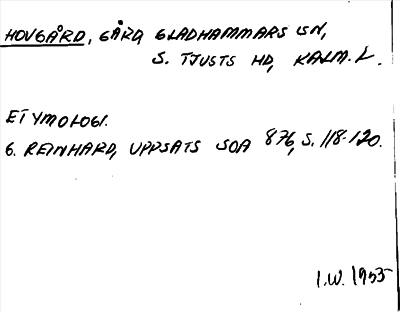 HOVGÅRD, GÅRD, GLADHAMMARS SN,
S. TJUSTS HD, KALM. L.
ETYMOLOGI.
G. REINHARD, UPPSATS SOA 876, S. 118-120.
I.W. 1955